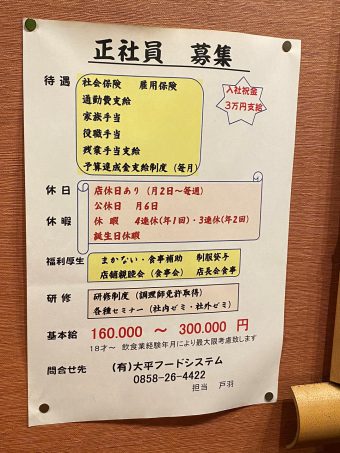 正社員 募集
待遇 社会保険 雇用保険
通勤費支給
家族手当
役職手当
残業手当支給
予算達成金支給制度（毎月）
入社祝金
3万円支給
休日 店休日あり（月2日～毎週）
公休日 月6日
休暇 休暇 4連休（年1回）・3連休（年2回）
誕生日休暇
福利厚生 まかない・食事補助 制服貸与
店舗親睦会（食事会） 店長会食事
研修 研修制度（調理師免許取得）
各種セミナー（社内ゼミ・社外ゼミ）
基本給 160.000 ～ 300.000 円
18才～ 飲食業経験年月により最大限考慮致します
問合せ先 (有)大平フードシステム
0858-26-4422
担当 戸羽